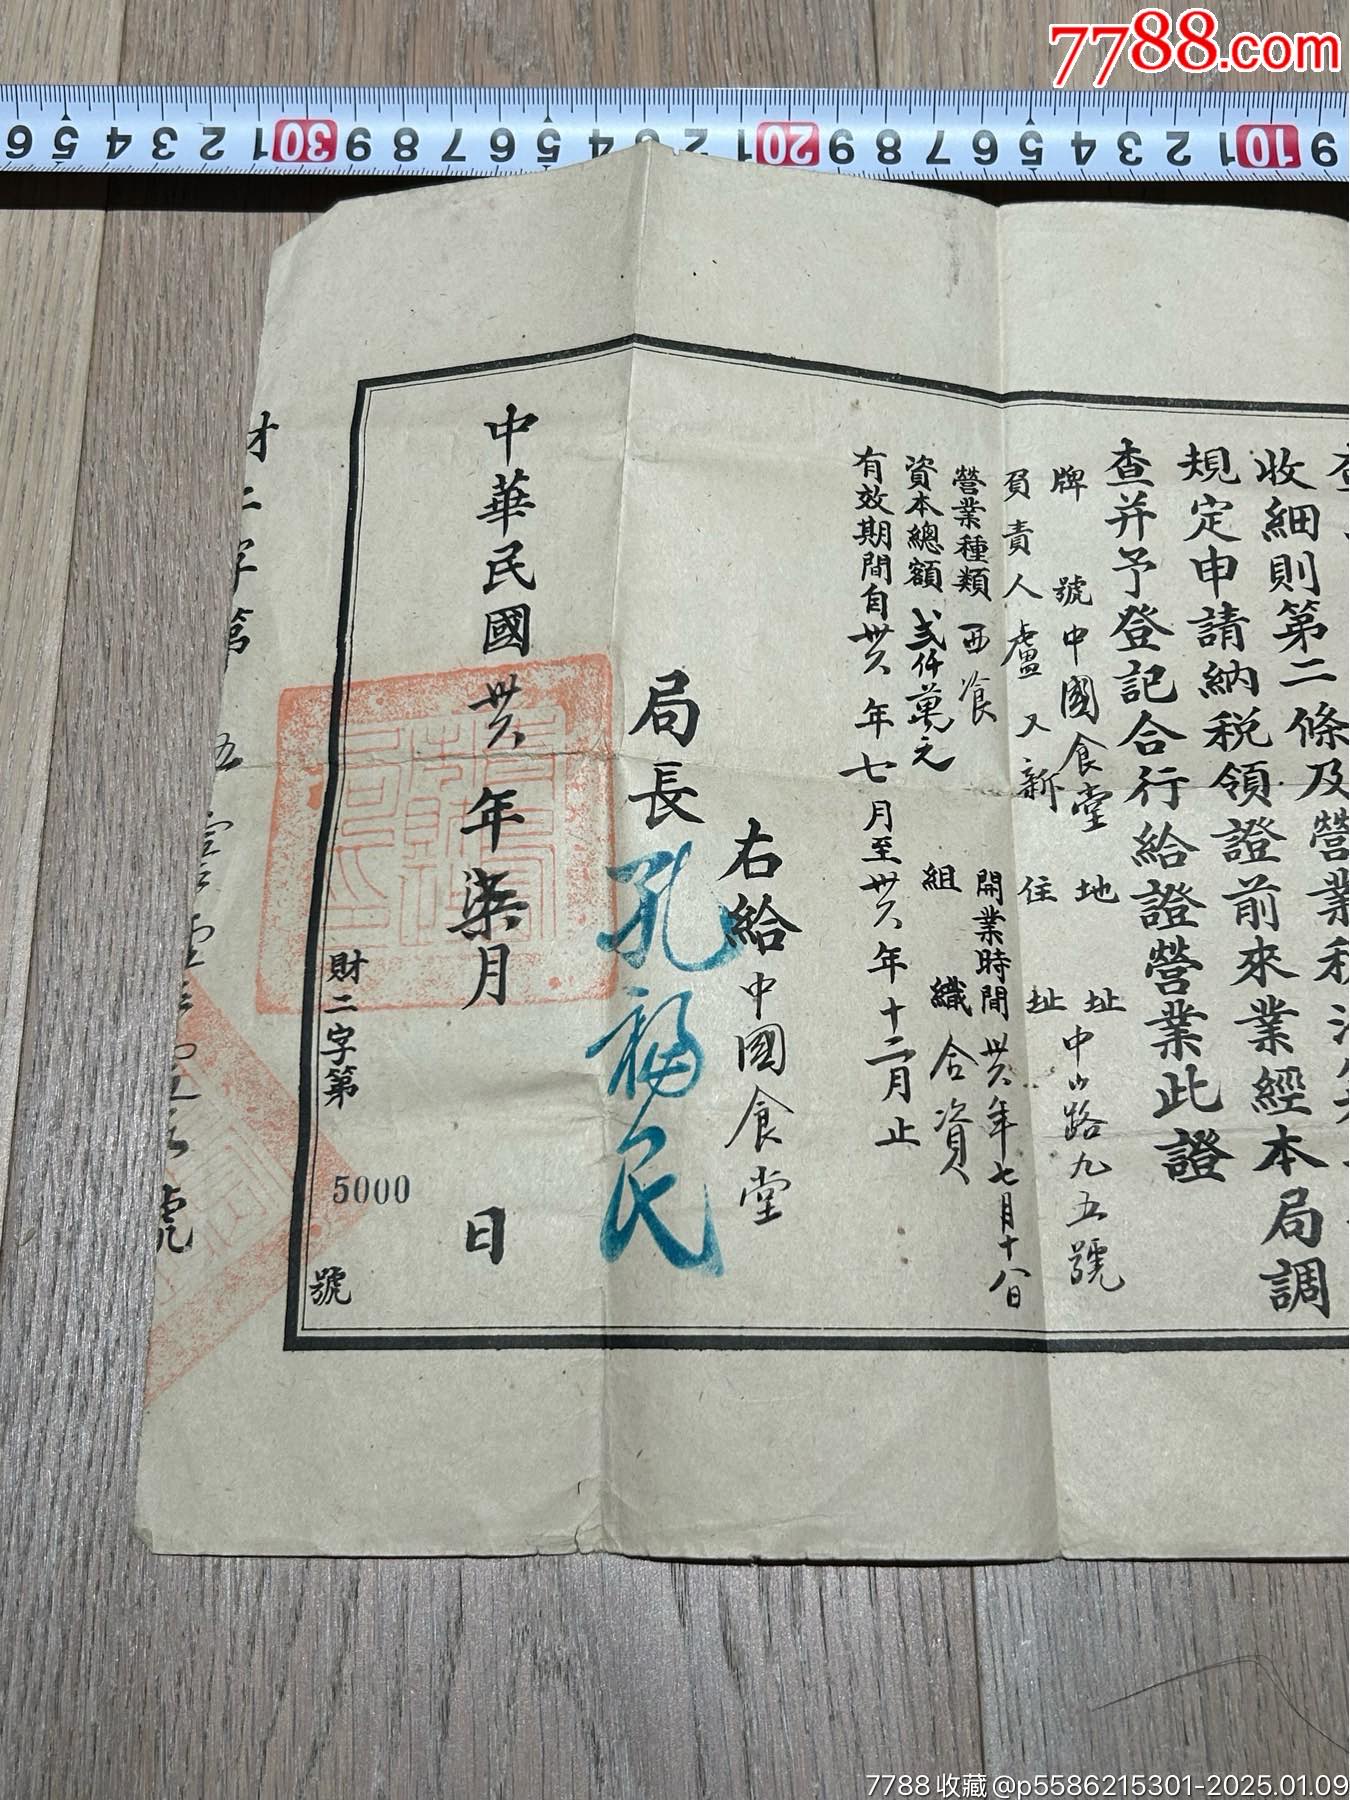 7788.com
6 5 4 3 2 1 30 9 8 7 6 5 4 3 2 1 20 9 8 7 6 5 4 3 2 1 10 9
收細則第二條及營業稅法
規定申請納税領證前來業經本局調
查并予登記合行給證營業此證
牌號中國食堂 地址中山路九五號
負責人盧又新 住址
營業種類西飡 開業時間卅六年七月十八日
資本總額貳仟萬元 組織合資
有效期間自卅六年七月至卅六年十二月止
右給中國食堂
局長孔福民
中華民國卅六年柒月 日
財二字第5000號
財二字第 號
7788收藏@p5586215301-2025.01.09